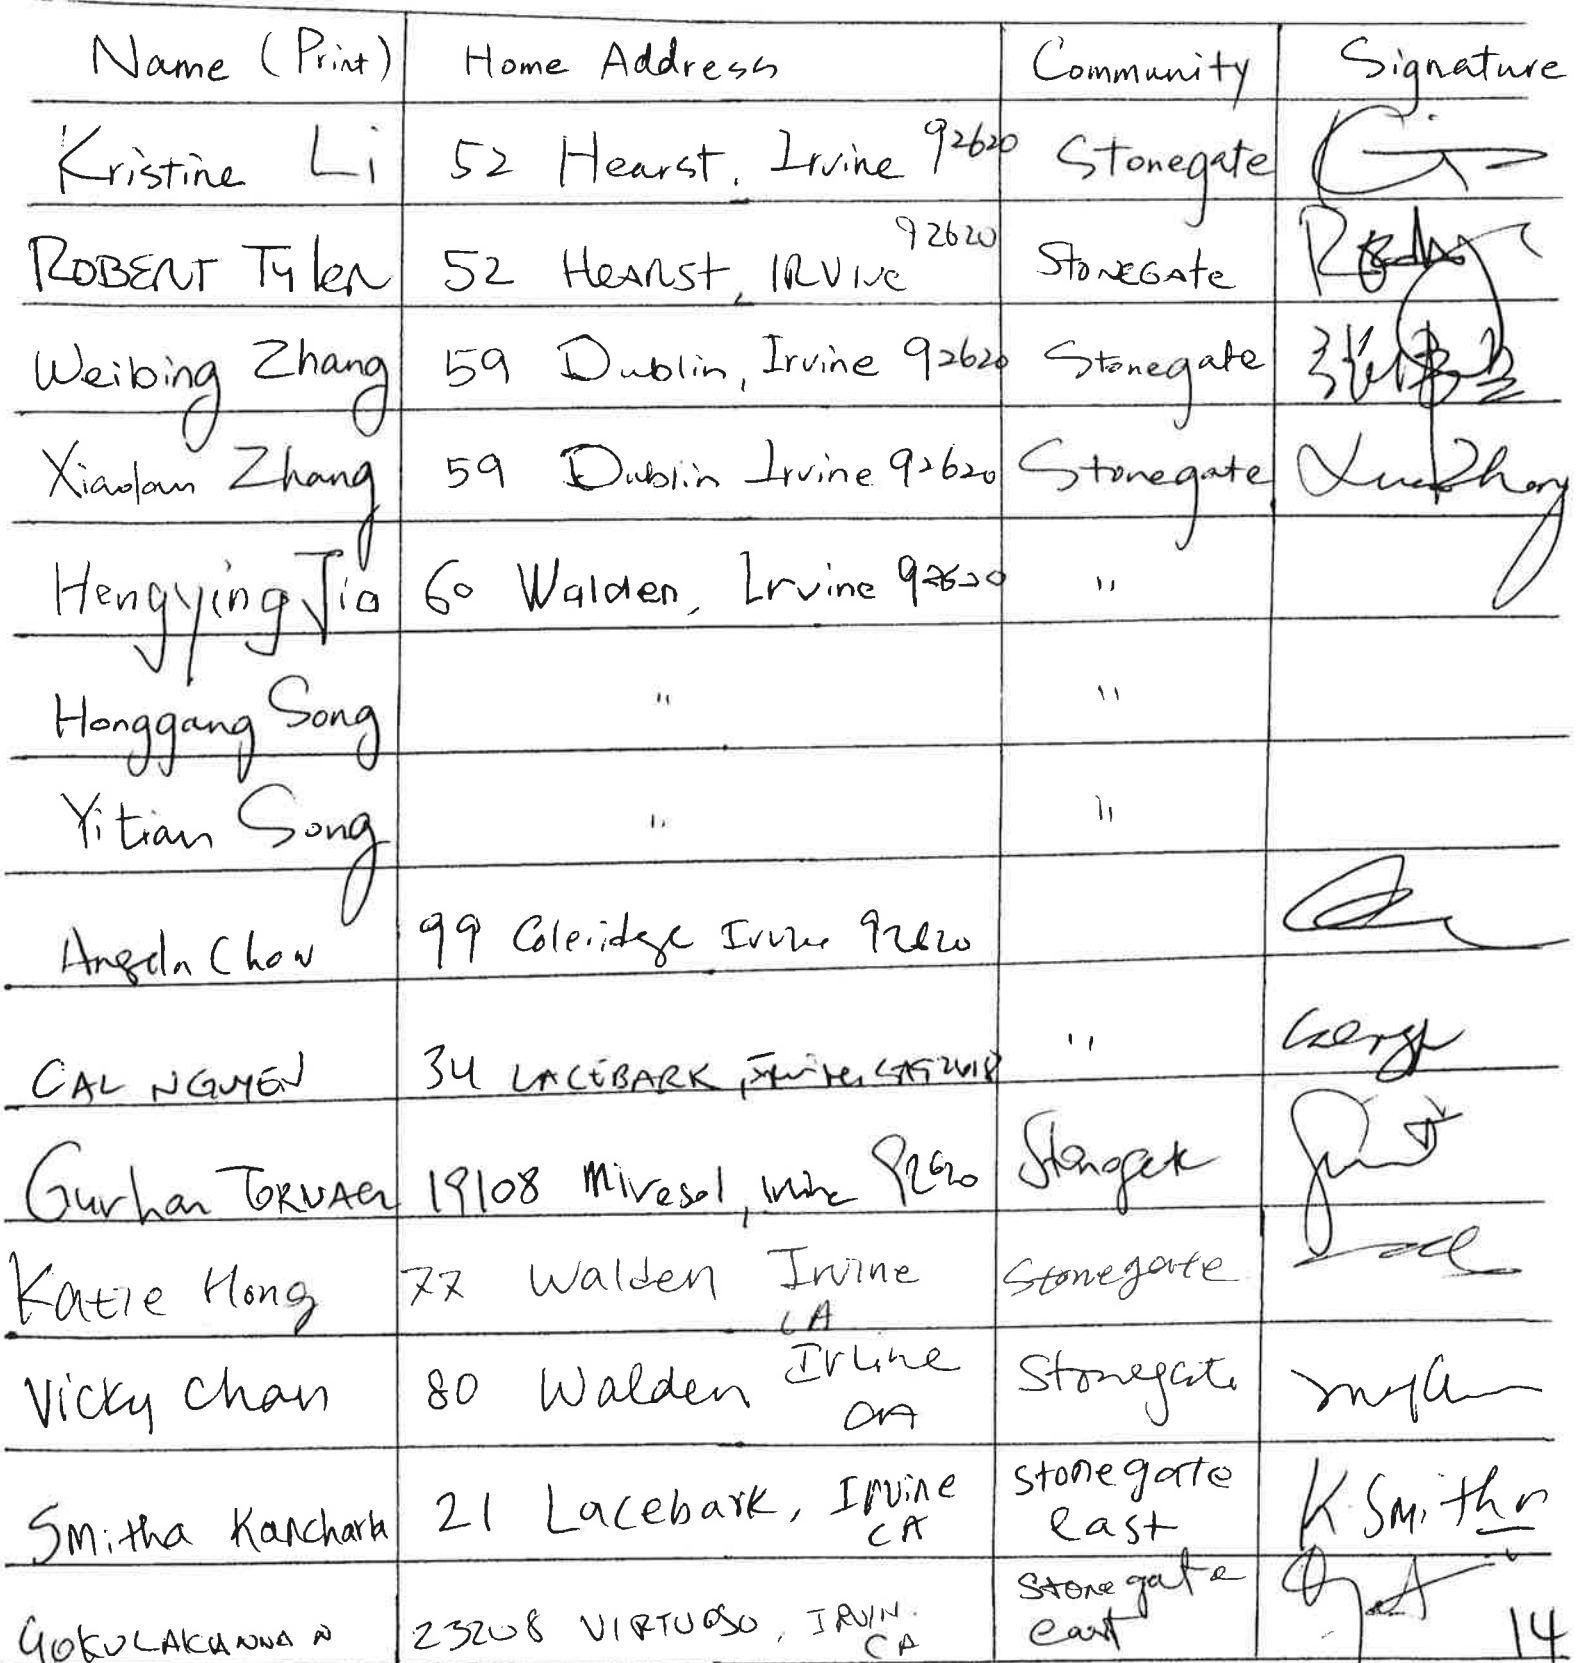 Name (Print) Home Address Community Signature
Kristine Li 52 Hearst, Irvine 92620 Stonegate
ROBERT Tyler 52 HEARST, IRVINE 92620 STONEGATE
Weibing Zhang 59 Dublin, Irvine 92620 Stonegate
Xiaolan Zhang 59 Dublin Irvine 92620 Stonegate
Hengying Jia 60 Walden, Irvine 92620 "
Honggang Song " "
Yitian Song " "
Angela Chow 99 Coleridge Irvine 92620
CAL NGUYEN 34 LACEBARK, Irvine, CA 92618 "
Gurhan 19108 Mirasol, Irvine 92620 Stonegate
Katie Hong 77 Walden Irvine CA Stonegate
Vicky Chan 80 Walden Irvine CA Stonegate
Smitha Kancharla 21 Lacebark, Irvine CA Stonegate east K. Smitha
GOKULAKANNAN 23208 VIRTUOSO, IRVIN. CA Stonegate east
14